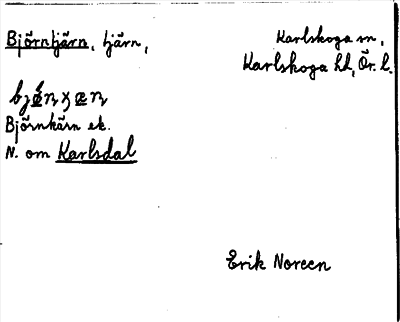 Björntjärn, tjärn,
Karlskoga sn,
Karlskoga hd, Ör. l.
Björnkärn ek.
N. om Karlsdal
Erik Noreen